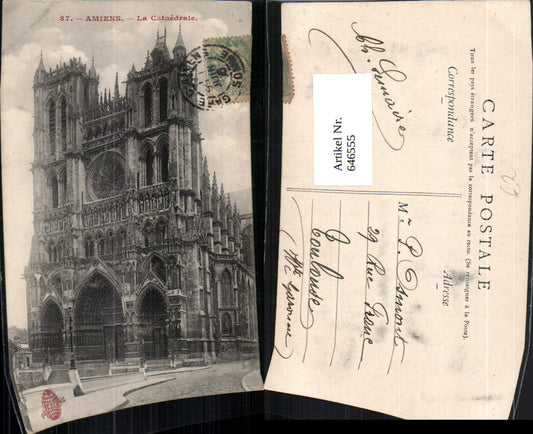 37. - AMIENS. - La Cathédrale.
CARTE POSTALE
Tous les pays étrangers n'acceptent pas la correspondance au recto. (Se renseigner à la Poste).
Correspondance
Adresse
Ch. Lemaire
Artikel Nr.
646555
Mr P. Osmont
29 Rue Franc
à
Toulouse
Hte Garonne